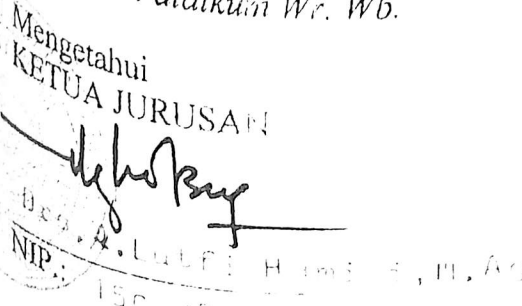 Wr. Wb.
Mengetahui
KETUA JURUSAN
Drs. A. Lutfi H , M. Ag
NIP.: 150